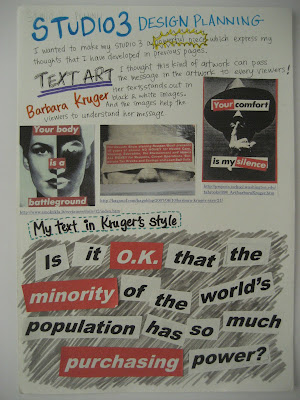 STUDIO3 DESIGN PLANNING
I wanted to make my STUDIO 3 a powerful piece which express my
thoughts that I have developed in previous pages.
TEXT ART
I thought this kind of artwork can pass
the message in the artwork to every viewers!
Barbara Kruger
Her text stands out in
black & white images.
And the images help the
viewers to understand her message.
Your body
is a
battleground
Your comfort
is my silence
My text in Kruger's style
Is it O.K. that the
minority of the world's
population has so much
purchasing power?